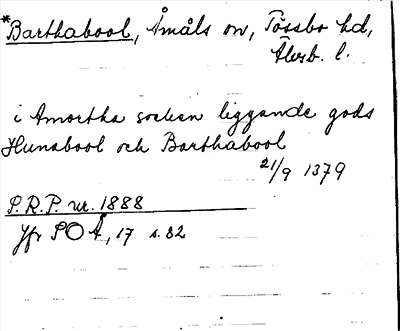 *Barthabool, Åmåls sn, Tössbo hd,
Älvsb. l.
i Amortha socken liggande gods
Hunabool och Barthabool
21/9 1379
P.R.P. nr. 1888
Jfr SOÄ, 17 s. 82